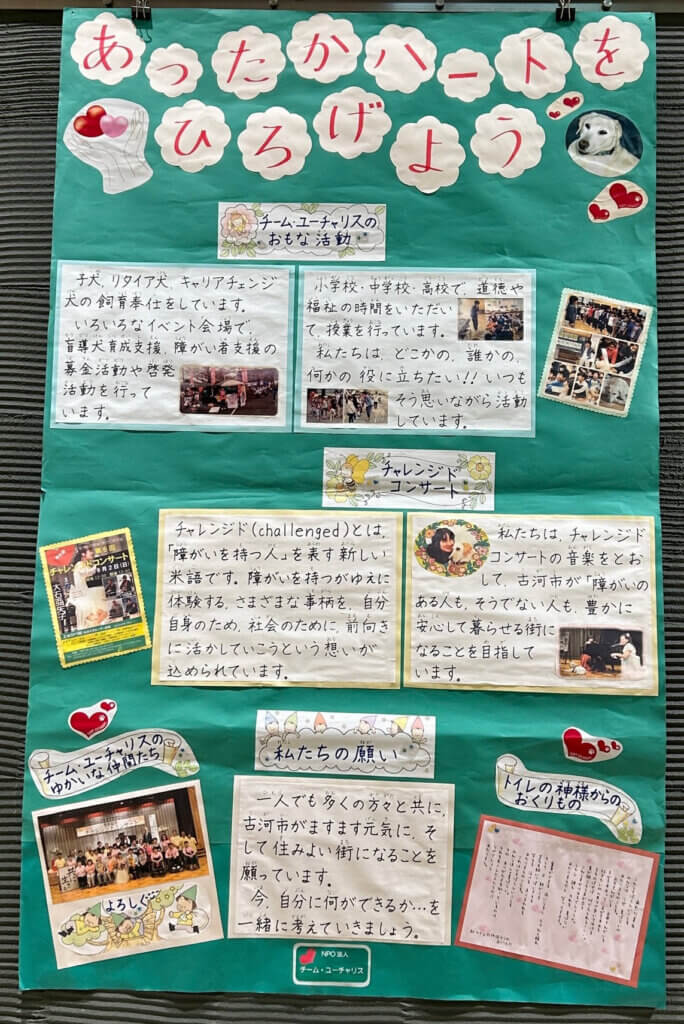 あったかハートを
ひろげよう
チーム・ユーチャリスの
おもな活動
子犬、リタイア犬、キャリアチェンジ
犬の飼育奉仕をしています。
いろいろなイベント会場で、
盲導犬育成支援、障がい者支援の
募金活動や啓発
活動を行って
います。
小学校・中学校・高校で、道徳や
福祉の時間をいただい
て、授業を行っています。
私たちは、どこかの、誰かの、
何かの役に立ちたい!!いつも
そう思いながら活動
しています。
チャレンジド
コンサート
チャレンジドコンサート
チャレンジド(challenged)とは、
「障がいを持つ人」を表す新しい
米語です。障がいを持つがゆえに
体験する、さまざまな事柄を、自分
自身のため、社会のために、前向き
に活かしていこうという想いが
込められています。
私たちは、チャレンジド
コンサートの音楽をとお
して、古河市が「障がいの
ある人も、そうでない人も、豊かに
安心して暮らせる街に
なることを目指して
います。
チーム・ユーチャリスの
ゆかいな仲間たち
よろしく
私たちの願い
一人でも多くの方々と共に、
古河市がますます元気に、そ
して住みよい街になることを
願っています。
今、自分に何ができるか…を
一緒に考えていきましょう。
トイレの神様からの
おくりもの
NPO法人
チーム・ユーチャリス